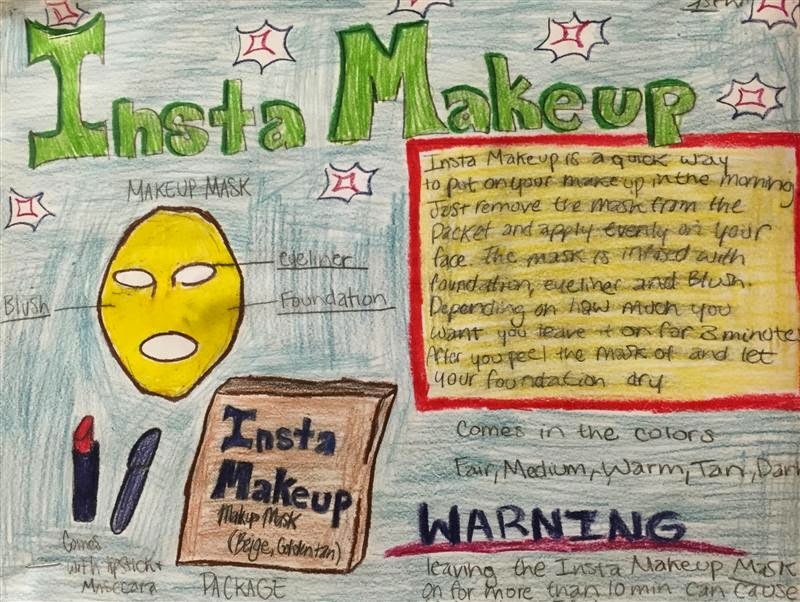 Insta Makeup
MAKEUP MASK
eyeliner
Blush
Foundation
Insta Makeup is a quick way
to put on your makeup in the morning
Just remove the mask from the
packet and apply evenly on your
face. the mask is infused with
foundation, eyeliner and Blush.
Depending on how much you
want you leave it on for 3 minute
After you peel the mask of and let
your foundation dry
Comes in the colors
Fair, Medium, Warm, Tan, Dar
Insta
Makeup
Makup Mask
(Beige, Goldentan)
Comes
with lipstick+
Masccara
PACKAGE
WARNING
leaving the Insta Makeup Mask
on for more than 10 min can cause